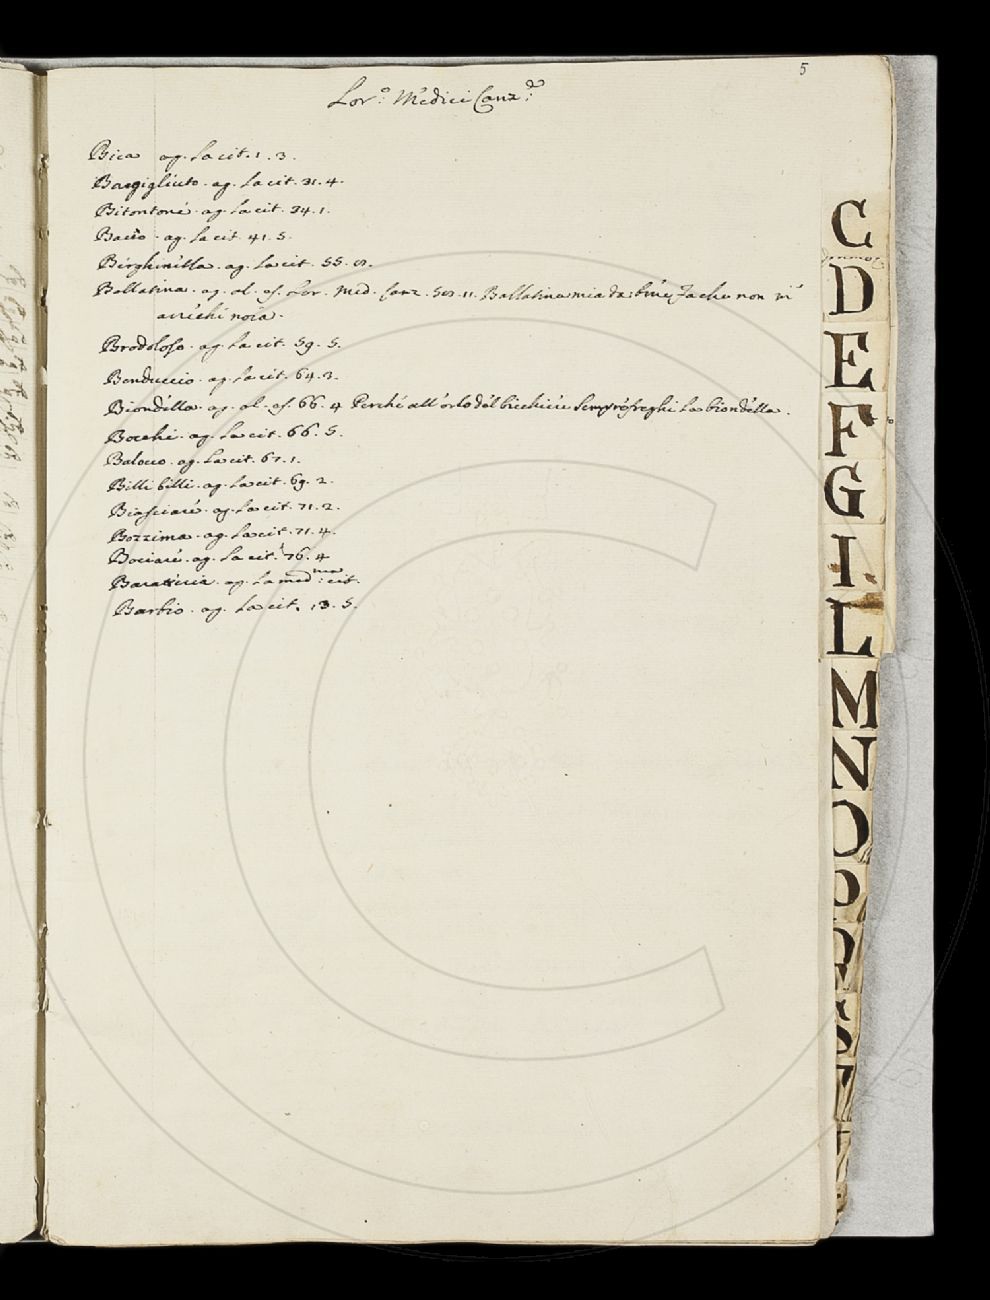 5
Lor.o Medici Canz.e
Bica ag. la cit. 1. 3.
ag. la cit. 31. 4.
Bitontone ag. la cit. 34. 1.
Bacio ag. la cit. 41. 5.
Berghinella ag. la cit. 55.
Ballatina ag. al. es. Lor. Med. Canz. 11. Ballatina mia fa che non m'
arrechi noia.
Brodoloso ag. la cit. 59. 5.
Benduccio ag. la cit. 64. 3.
Biondella ag. al. es. 66. 4 Perché all'orlo del bicchiere sempre freghi la biondella.
Bocchi ag. la cit. 66. 5.
Balocco ag. la cit. 67. 1.
Billi billi ag. la cit. 69. 2.
Biasciare ag. la cit. 71. 2.
Bozzima ag. la cit. 71. 4.
Bociare ag. la cit. 76. 4
Baratteria ag. la med.ma cit.
Barbio ag. la cit. 13. 5.
C
D
E
F
G
I
L
M
N
O
P
Q
S
T